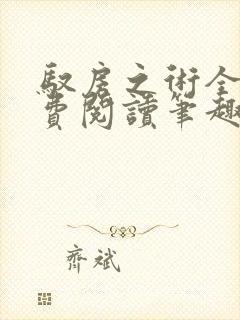 馭房之術全
費閱讀筆趣
齊斌